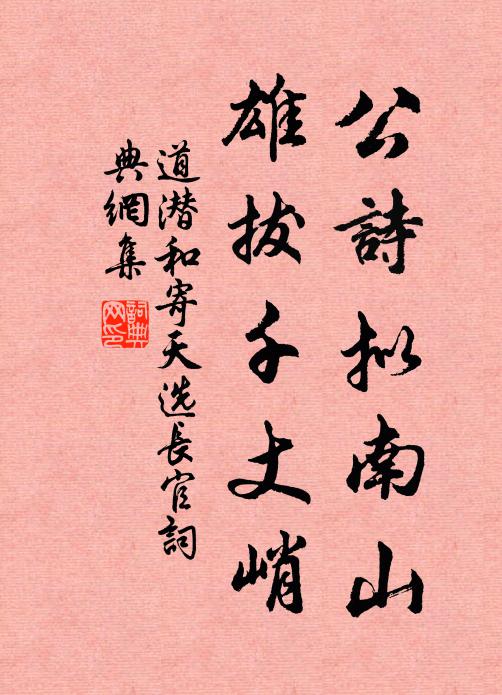 公詩拟南山
雄拔千丈峭
道潜和寄天选長官詞
典網集
詞典
网印